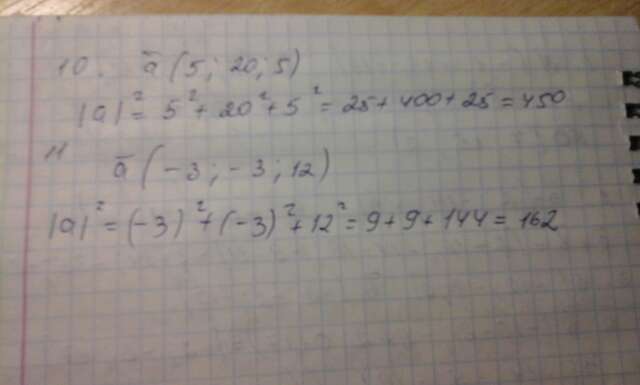 10. ā (5; 20; 5)
|a|² = 5² + 20² + 5² = 25 + 400 + 25 = 450
11 ā (-3; -3; 12)
|a|² = (-3)² + (-3)² + 12² = 9 + 9 + 144 = 162